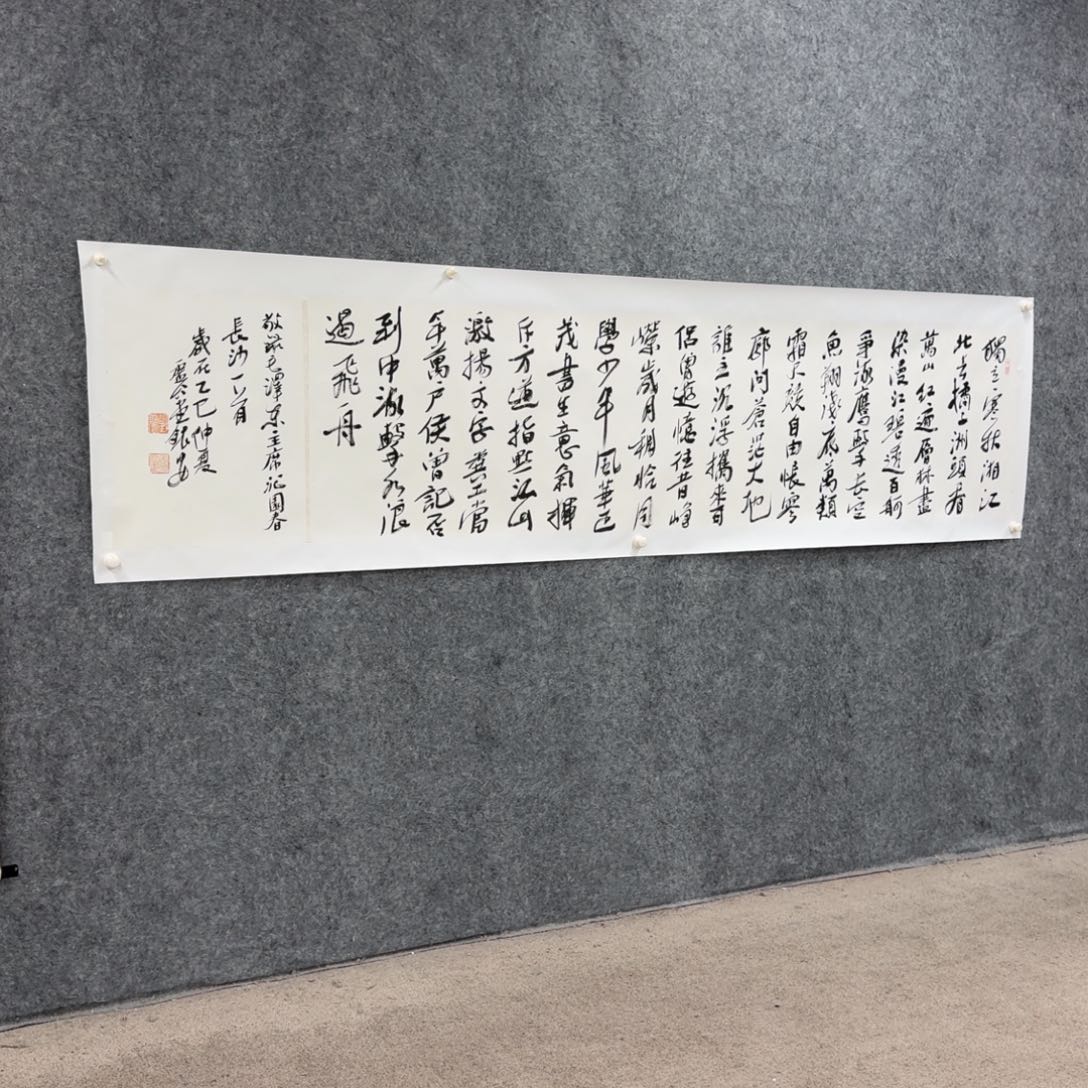 獨立寒秋湘江
北去橘子洲頭看
萬山紅遍層林盡
染漫江碧透百舸
爭流鷹擊長空
魚翔淺底萬類
霜天競自由悵寥
廓問蒼茫大地
誰主沉浮攜來百
侶曾遊憶往昔崢
嶸歲月稠恰同
學少年風華正
茂書生意氣揮
斥方遒指點江山
激揚文字糞土當
年萬戶侯曾記否
到中流擊水浪
遏飛舟
敬錄毛澤東主席沁園春
長沙一首
歲在乙巳仲夏